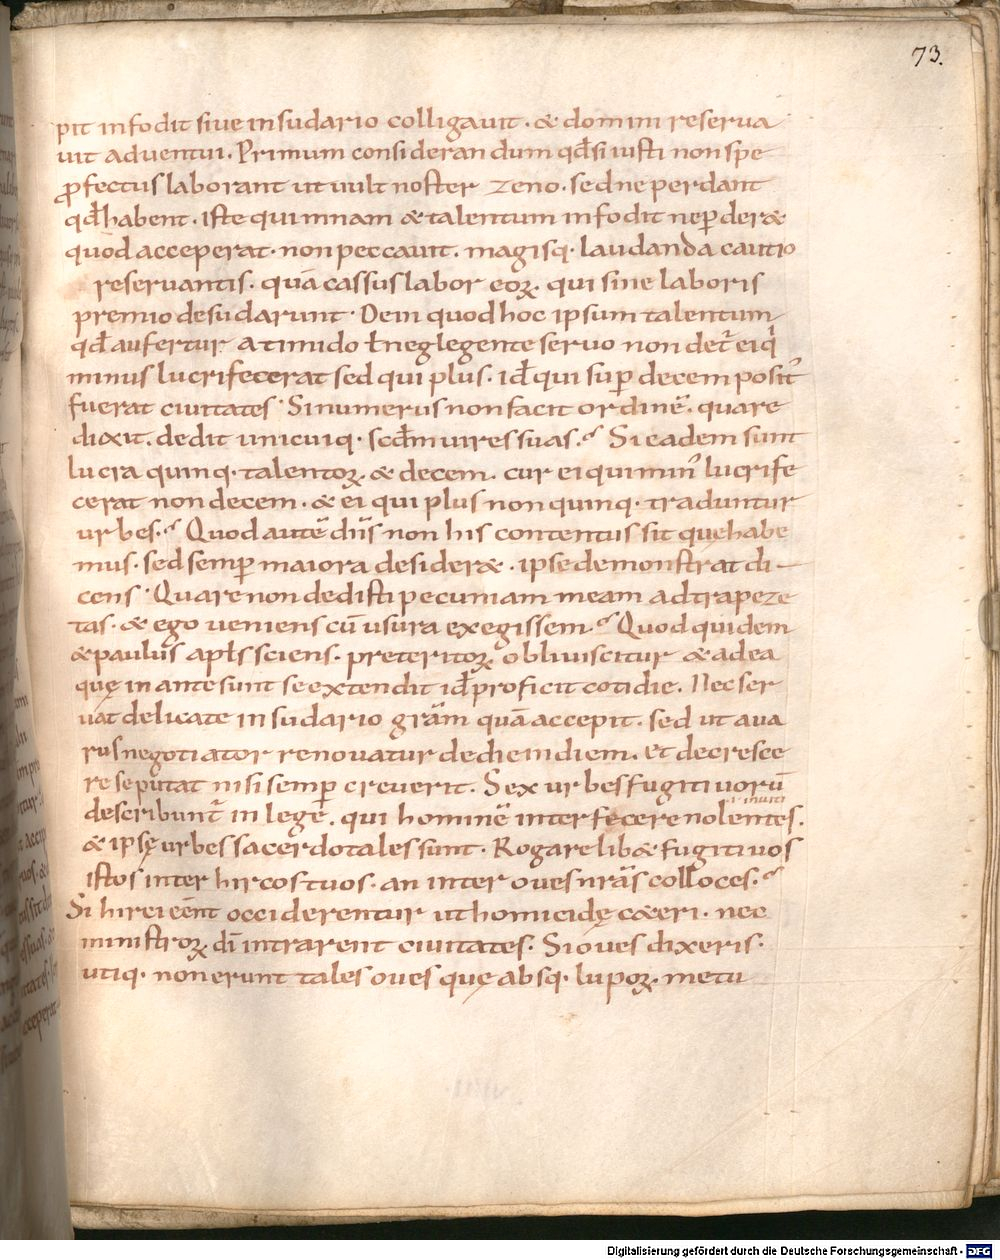 73.
pit infodit siue insudario colligauit. & domini reserua
uit aduentui. Primum considerandum qđsi iusti non spe
ꝓfectus laborant ut uult noster zeno. sed ne perdant
qđ habent. iste qui mnam & talentum infodit neꝑder&
quod acceperat. non peccauit. magisq; laudanda cautio
reseruantis. quā cassus labor eoꝝ. qui sine laboris
premio desudarunt. Dem quod hoc ipsum talentum
qđ aufertur a timido ł neglegente seruo non det̄ ei q̇
minus lucrifecerat sed qui plus. id ÷ qui suꝑ decem posit᾽
fuerat ciuitates. Si numerus non facit ordinē. quare
dixit. dedit unicuiq; scđm uires suas.? Si eadem sunt
lucra quinq; talentoꝝ. & decem. cur ei qui min᾽ lucrife
cerat non decem. & ei qui plus non quinq; traduntur
urbes.? Quod autē dn̄s non his contentus sit quę habe
mus. sed semꝑ maiora desider&. ipse demonstrat di-
cens. Quare non dedisti pecuniam meam ad trapeze
tas. & ego ueniens cū usura exegissem.? Quod quidem
& paulus apłs sciens. preteritoꝝ obliuiscitur & ad ea
quę in ante sunt se extendit id ÷ proficit cotidie. Nec ser
uat delicate in sudario grām quā accepit. sed ut aua
rus negotiator renouatur de die in diem. et decresce
re se putat nisi semꝑ creuerit. Sex urbes fugitiuorū
describunt̄ in lege. qui hominē interfecere nolentes.
& ipsę urbes sacerdotales sunt. Rogare lib& fugitiuos
istos inter hircos tuos. an inter oues nr̄as colloces.?
Si hirci eēnt occiderentur ut homicidę c&eri. nec
ministroꝝ dī intrarent ciuitates. Si oues dixeris.
utiq; non erunt tales oues quę absq; lupoꝝ. metu
Digitalisierung gefördert durch die Deutsche Forschungsgemeinschaft - DFG